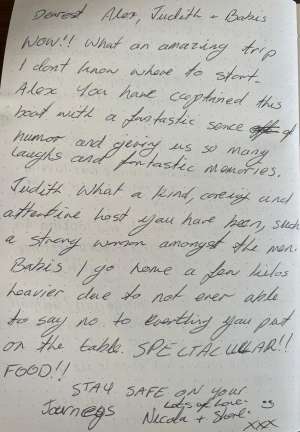 Dearest Alex, Judith + Babis
WOW!! What an amazing trip
I dont know where to start.
Alex You have captained this
boat with a fantastic sence of
humor and giving us so many
laughs and fantastic memories.
Judith What a kind, careing and
attentive host you have been, such
a strong woman amongst the men.
Babis I go home a few kilos
heavier due to not ever able
to say no to everthing you put
on the table. SPECTACULAR!!
FOOD!!
STAY SAFE ON YOUR
Journeys
Lots of Love
Nicola +
xxx